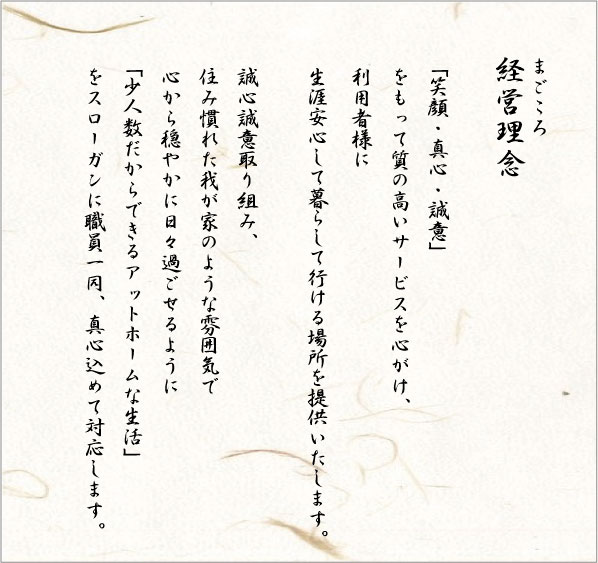 まごころ
経営理念
「笑顔・真心・誠意」
をもって質の高いサービスを心がけ、
利用者様に
生涯安心して暮らして行ける場所を提供いたします。
誠心誠意取り組み、
住み慣れた我が家のような雰囲気で
心から穏やかに日々過ごせるように
「少人数だからできるアットホームな生活」
をスローガンに職員一同、真心込めて対応します。